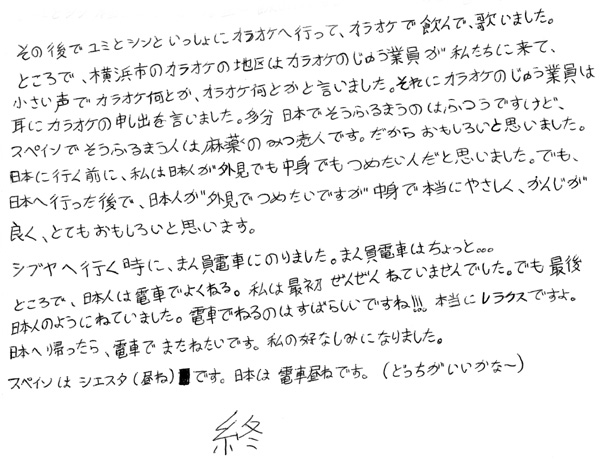 その後でユミとシンといっしょにカラオケへ行って、カラオケで飲んで、歌いました。
ところで、横浜市のカラオケの地区はカラオケのじゅう業員が私たちに来て、
小さい声でカラオケ何とか、カラオケ何とかと言いました。それにカラオケのじゅう業員は
耳にカラオケの申し出を言いました。多分日本でそうふるまうのはふつうですけど、
スペインでそうふるまう人は麻薬のみつ売人です。だからおもしろいと思いました。
日本に行く前に、私は日本人が外見でも中身でもつめたい人だと思いました。でも、
日本へ行った後で、日本人が外見でつめたいですが中身で本当にやさしく、かんじが
良く、とてもおもしろいと思います。
シブヤへ行く時に、まん員電車にのりました。まん員電車はちょっと。。。
ところで、日本人は電車でよくねる。私は最初ぜんぜんねていませんでした。でも最後
日本人のようにねていました。電車でねるのはすばらしいですね!!! 本当にレラクスですよ。
日本へ帰ったら、電車でまたねたいです。私の好なしみになりました。
スペインはシエスタ(昼ね)です。日本は電車昼ねです。(どっちがいいかな〜)
終